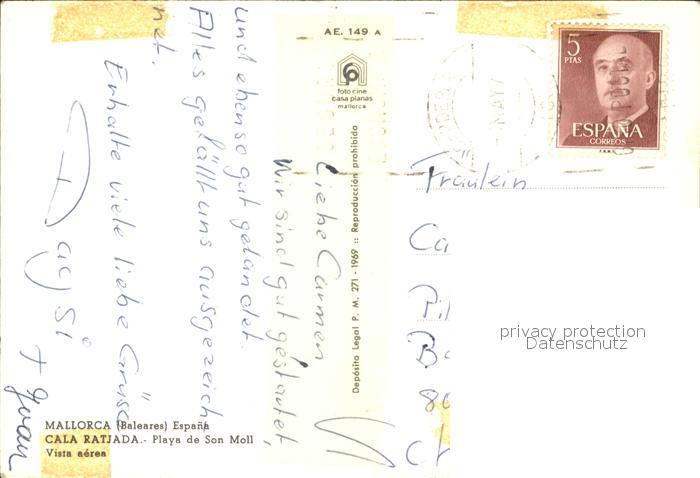 AE. 149 A
foto cine
casa planas
mallorca
Depósito Legal P. M. 271 - 1969 :: Reproducción prohibida
5
PTAS
ESPAÑA
CORREOS
Liebe Carmen
Wir sind gut gestartet,
und ebenso gut gelandet.
Alles gefällt uns ausgezeich
net.
Erhalte viele liebe Grüsse
Dagsi
+ Juan
Fräulein
Ca
Pil
privacy protection
Datenschutz
MALLORCA (Baleares) España
CALA RATJADA.- Playa de Son Moll
Vista aérea